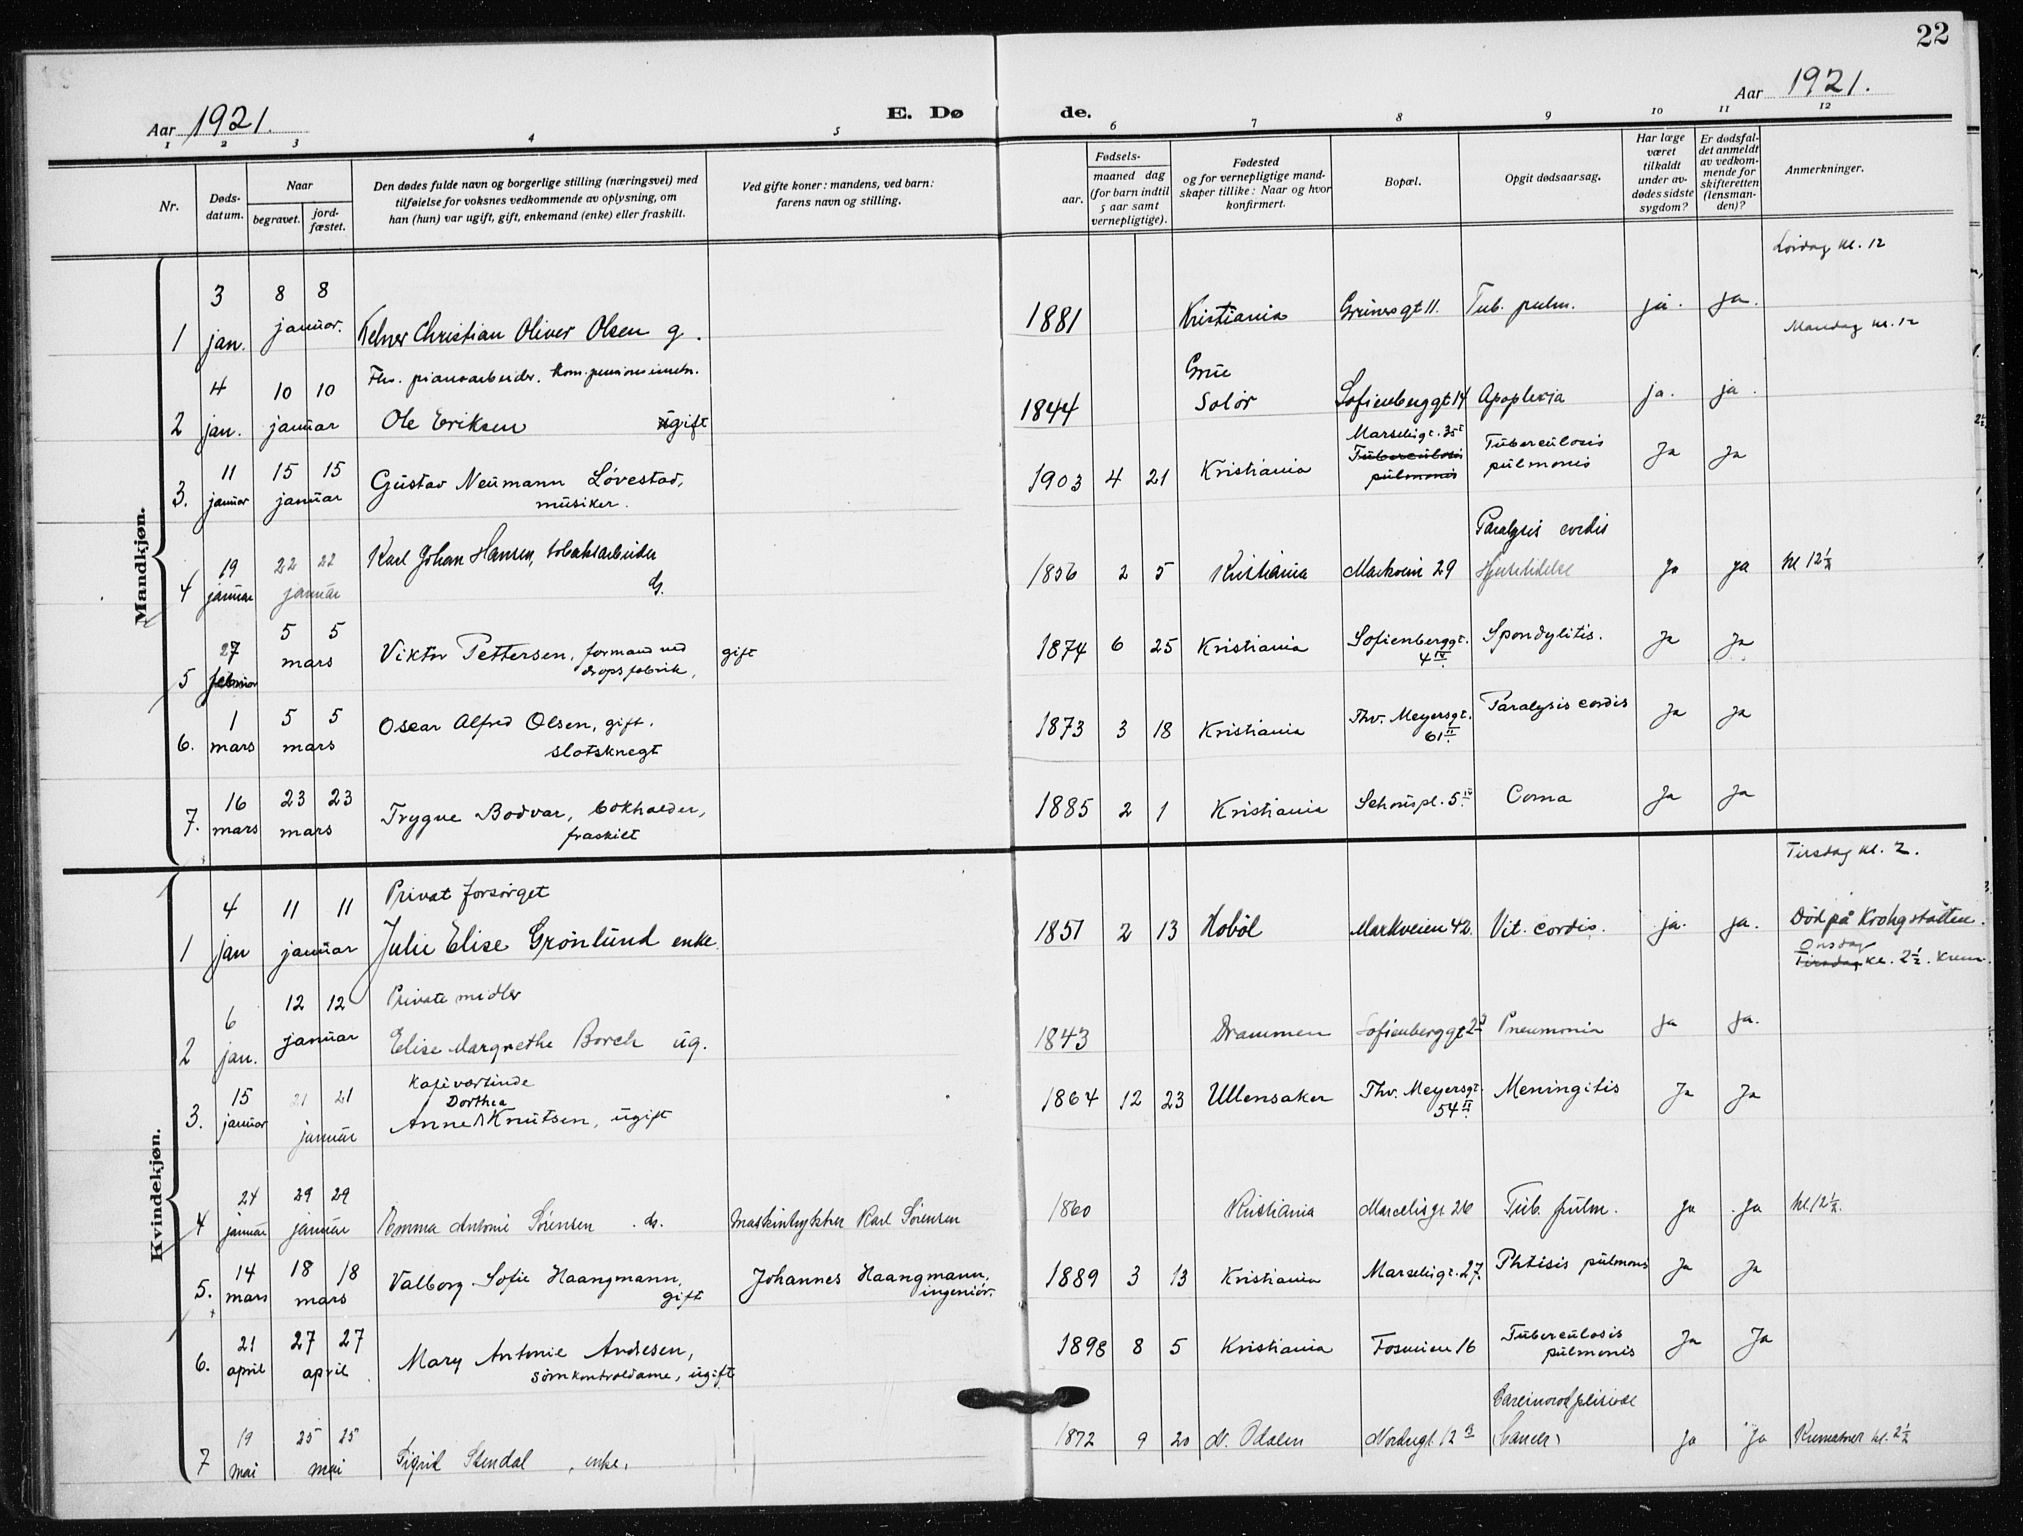 22
Aar 1921. E. Dø de. Aar 1921.
1 2 3 4 5 6 7 8 9 10 11 12
Nr.
Døds-
datum.
Naar
begravet.
jord-
fæstet.
Den dødes fulde navn og borgerlige stilling (næringsvei) med
tilføielse for voksnes vedkommende av oplysning, om
han (hun) var ugift, gift, enkemand (enke) eller fraskilt.
Ved gifte koner: mandens, ved barn:
farens navn og stilling.
Fødsels-
aar.
maaned dag
(for barn indtil
5 aar samt
vernepligtige).
Fødested
og for vernepligtige mand-
skaper tillike: Naar og hvor
konfirmert.
Bopæl.
Opgit dødsaarsag.
Har læge
været
tilkaldt
under av-
dødes sidste
sygdom?
Er dødsfal-
det anmeldt
av vedkom-
mende for
skifteretten
(lensman-
den)?
Anmerkninger.
Mandkjøn.
Lørdag kl. 12
3 8 8
1 jan. januar. Kelner Christian Oliver Olsen g. 1881 Kristiania Grünersgt 11. Tub. pulm. ja. ja.
Mandag kl. 12
4 10 10 Fhv. pianoarbeider.
2 jan. januar Ole Eriksen ugift 1844 Grue
Solør Sofienberggt 14 Apoplexia ja. ja.
11 15 15
3. januar januar Gustav Neumann Løvestad,
musiker. 1903 4 21 Kristiania Marselisgt. 35
Tuberculosis
pulmonis
Tuberculosis
pulmonis Ja Ja
19 22 22
4 januar januar Karl Johan Hansen, tobaksarbeider
G. 1856 2 5 Kristiania Markvein 29 Paralysis cordis
Hjertelidelse Ja ja kl 12½
27 5 5
5 februar mars Viktor Pettersen, formand ved
dropsfabrik, gift 1874 6 25 Kristiania Sofienberggt.
4 IV. Spondylitis. Ja Ja
1 5 5
6. mars mars Oscar Alfred Olsen, gift.
slotsknegt 1873 3 18 Kristiania Thv. Meyersgt.
61 II. Paralysis cordis Ja Ja
16 23 23
7. mars mars Trygve Bodvar, bokholder,
fraskilt 1885 2 1 Kristiania Schouspl. 5 IV Coma Ja Ja
Kvindekjøn.
Tirsdag kl. 2.
4 11 11 Privat forsørget
1 jan januar Julie Elise Grønlund enke. 1851 2 13 Hobøl Markveien 42. Vit. cordis. ja. ja. Død på Krohgstøtten.
Onsdag
Tirsdag kl. 2½. Krem.
6 12 12 Private midler
2 jan. januar Elise Margrethe Borch ug. 1843 Drammen Sofienberggt 2 Pneumonia Ja Ja.
15 21 21 Kafeværtinde
Dorthea
3. januar januar Anne Knutsen, ugift 1864 12 23 Ullensaker Thv. Meyersgt.
54 II. Meningitis Ja Ja
24 29 29
4 januar januar Emma Antonie Sørensen . G. Karl Sørensen 1860 Kristiania Marcelisgt 26 Tub. pulm. Ja Ja kl. 12½.
14 18 18
5. mars mars Valborg Sofie Haangmann,
gift Johannes Haangmann,
ingeniør. 1889 3 13 Kristiania Marselisgt. 27. Phtisis pulmonis Ja Ja
21 27 27
6. april april Mary Antonie Andresen,
sømkontroldame, ugift 1898 8 5 Kristiania Fosveien 16 Tuberculosis
pulmonis Ja Ja
19 25 25
7 mai mai Sigrid Stendal, enke. 1872 9 20 N. Odalen Nordregt 12 (Cancer) Ja Ja Krematoriet kl. 2½